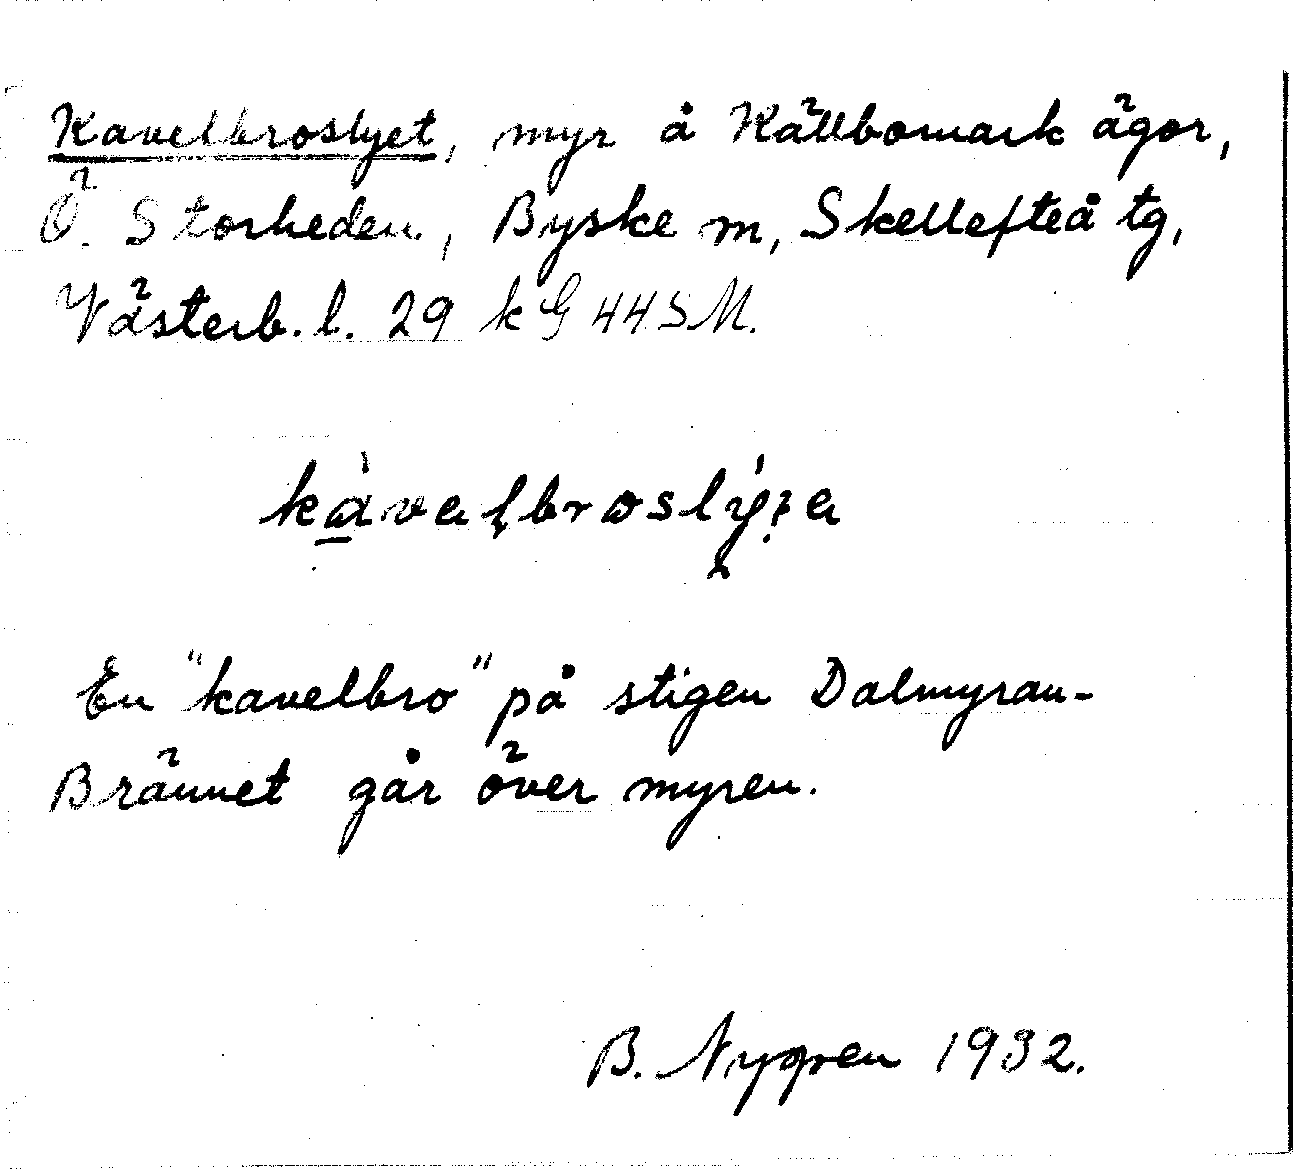 Kavelbroslyet, myr å Källbomark ägor,
Ö. Storheden, Byske sn, Skellefteå tg,
Västerb. l. 29 k G 44 SM.
En "kavelbro" på stigen Dalmyran-
Brännet går över myren.
B. Nygren 1932.